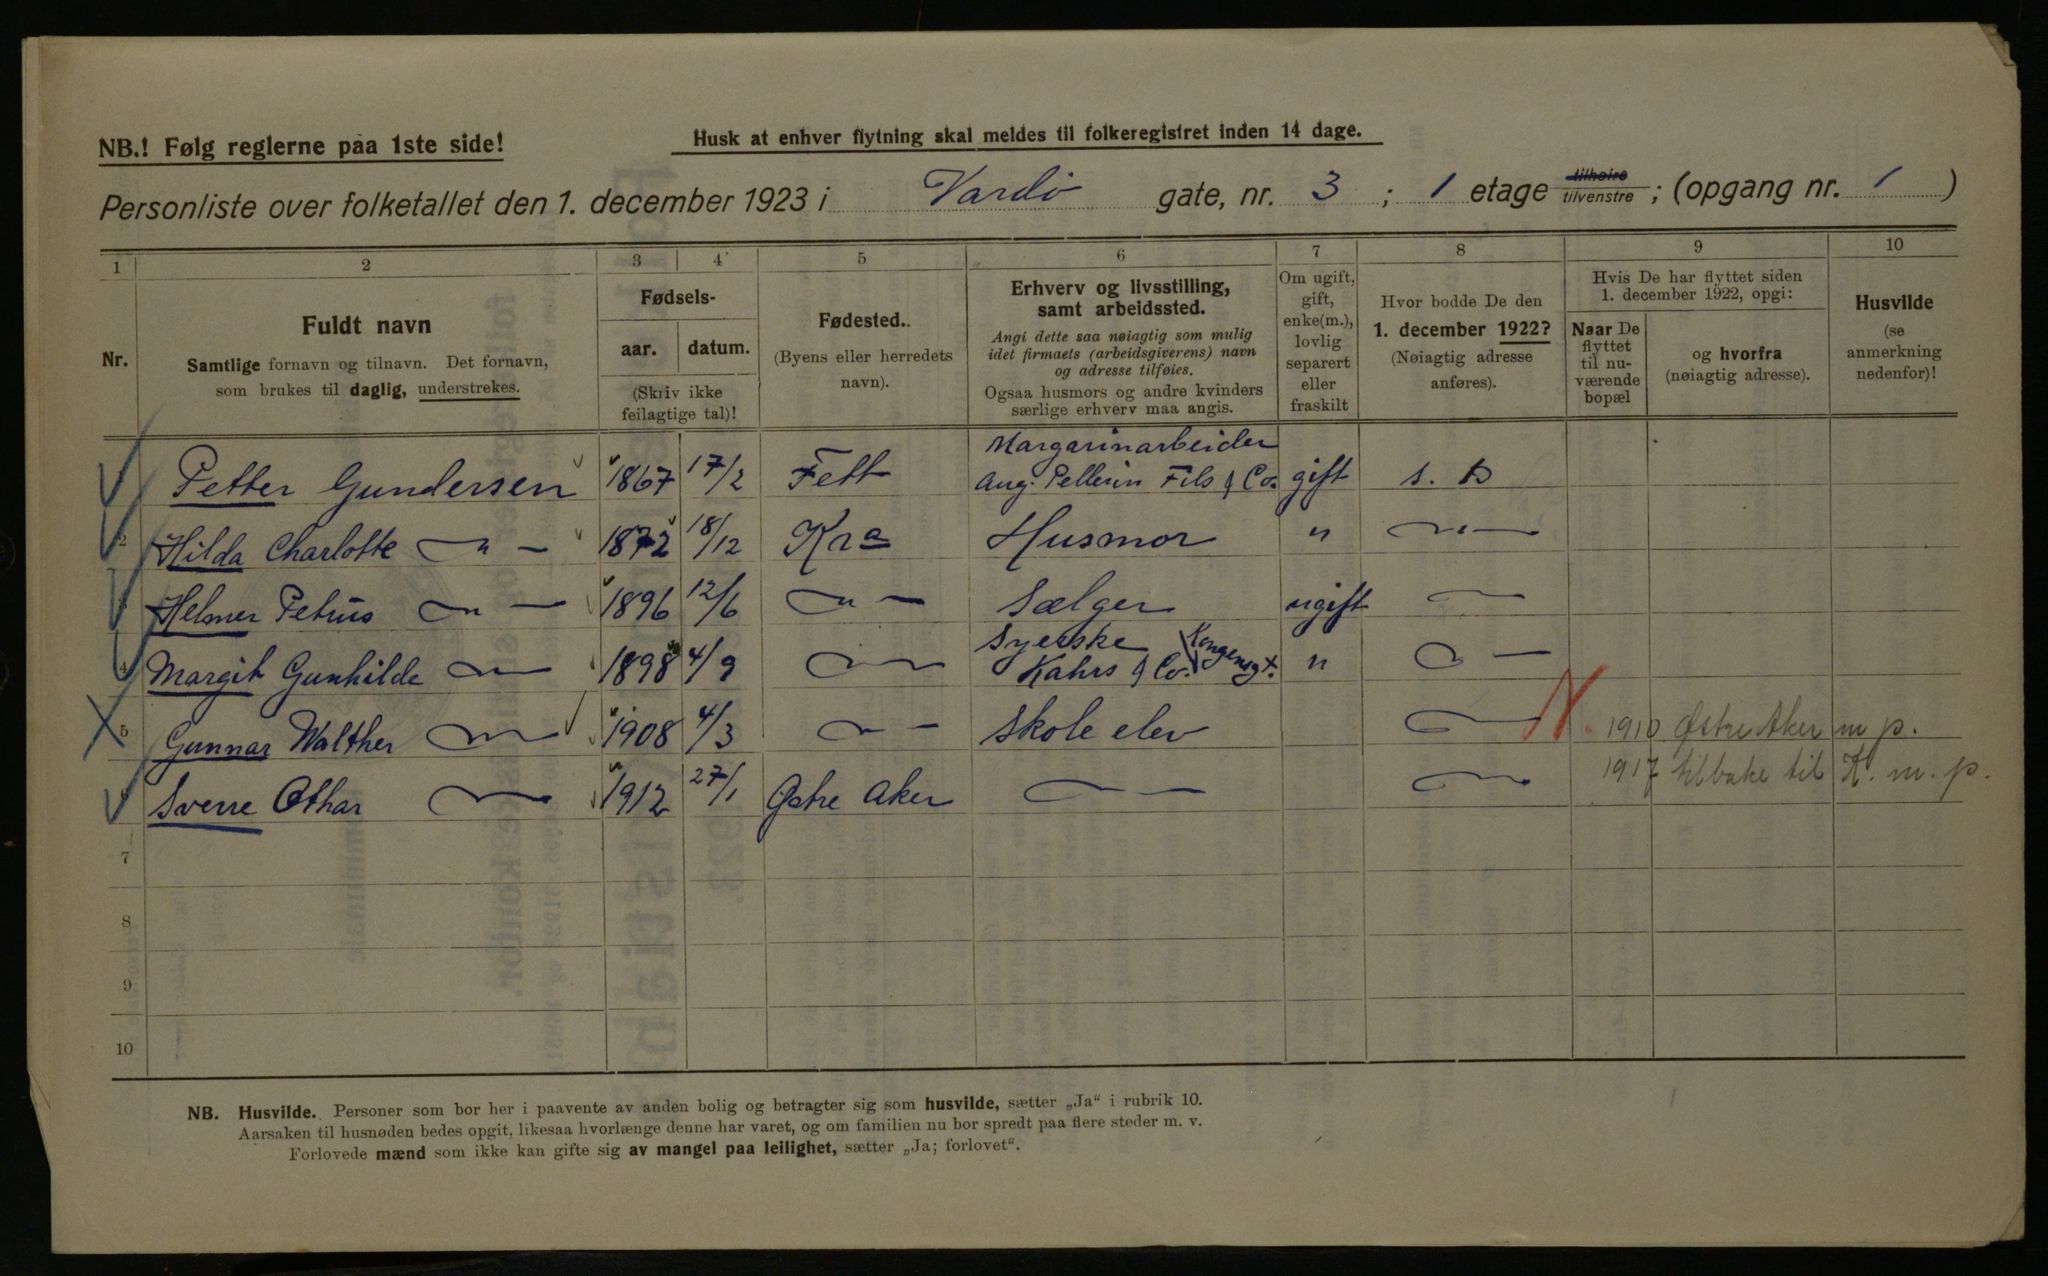 NB.! Følg reglerne paa 1ste side!
Husk at enhver flytning skal meldes til folkeregistret inden 14 dage.
Personliste over folketallet den 1. december 1923 i Vardö gate, nr. 3 ; 1 etage tilhøire tilvenstre ; (opgang nr. 1 )
1 2 3 4 5 6 7 8 9 10
Nr.
Fuldt navn
Samtlige fornavn og tilnavn. Det fornavn,
som brukes til daglig, understrekes.
Fødsels-
aar. datum.
(Skriv ikke
feilagtige tal)!
Fødested.
(Byens eller herredets
navn).
Erhverv og livsstilling,
samt arbeidssted.
Angi dette saa nøiagtig som mulig
idet firmaets (arbeidsgiverens) navn
og adresse tilføies.
Ogsaa husmors og andre kvinders
særlige erhverv maa angis.
Om ugift,
gift,
enke(m.),
lovlig
separert
eller
fraskilt
Hvor bodde De den
1. december 1922?
(Nøiagtig adresse
anføres).
Hvis De har flyttet siden
1. december 1922, opgi:
Naar De
flyttet
til nu-
værende
bopæl
og hvorfra
(nøiagtig adresse).
Husvilde
(se
anmerkning
nedenfor)!
Margarinarbeider
Petter Gundersen 1867 17/2 Fett Aug. Pellerin Fils & Co. gift s. s
2 Hilda Charlotte — " — 1872 18/12 Kra Husmor " — " —
3 Helmer Petrus — " — 1896 12/6 — " — Sælger ugift —
Syerske Kongensgt.
4 Margit Gunhilde — " — 1898 4/9 — " — Kahrs & Co. " —
5 Gunnar Walther — " — 1908 4/3 — " — Skole elev — N. 1910 Østre Aker m p.
1917 tilbake til K. m. p.
6 Sverre Othar — " — 1912 27/1 Østre Aker — —
7
8
9
10
NB. Husvilde. Personer som bor her i paavente av anden bolig og betragter sig som husvilde, sætter „Ja“ i rubrik 10.
Aarsaken til husnøden bedes opgit, likesaa hvorlænge denne har varet, og om familien nu bor spredt paa flere steder m. v.
Forlovede mænd som ikke kan gifte sig av mangel paa leilighet, sætter „Ja; forlovet“.